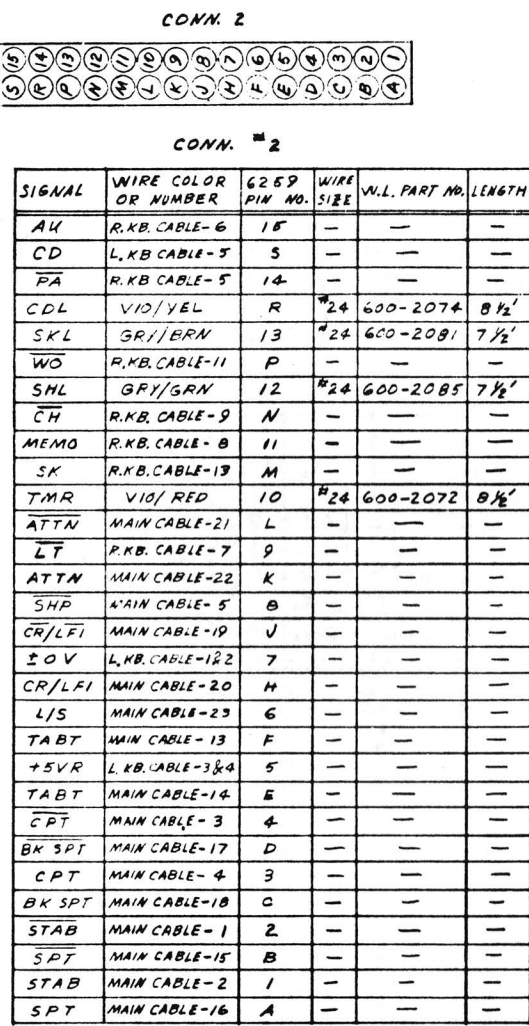 CONN. 2
15 14 13 12 11 10 9 8 7 6 5 4 3 2 1
S R P N M L K J H F E D C B A
CONN. #2
SIGNAL WIRE COLOR OR NUMBER 6259 PIN NO. WIRE SIZE W.L. PART NO. LENGTH
AU R.KB. CABLE-6 15 — — —
CD L.KB CABLE-5 S — — —
P̅A̅ R.KB. CABLE-5 14 — — —
CDL VIO/YEL R #24 600-2074 8 1/2'
SKL GRY/BRN 13 #24 600-2081 7 1/2'
W̅O̅ R.KB. CABLE-11 P — — —
SHL GRY/GRN 12 #24 600-2085 7 1/2'
C̅H̅ R.KB. CABLE-9 N — — —
MEMO R.KB. CABLE-8 11 — — —
SK R.KB. CABLE-13 M — — —
TMR VIO/RED 10 #24 600-2072 8 1/2'
A̅T̅T̅N̅ MAIN CABLE-21 L — — —
L̅T̅ R.KB. CABLE-7 9 — — —
ATTN MAIN CABLE-22 K — — —
S̅H̅P̅ MAIN CABLE-5 8 — — —
C̅R̅/L̅F̅I̅ MAIN CABLE-19 J — — —
±0V L.KB. CABLE-1&2 7 — — —
CR/LFI MAIN CABLE-20 H — — —
L/S MAIN CABLE-23 6 — — —
TABT MAIN CABLE-13 F — — —
+5VR L.KB. CABLE-3&4 5 — — —
TABT MAIN CABLE-14 E — — —
C̅P̅T̅ MAIN CABLE-3 4 — — —
B̅K̅ S̅P̅T̅ MAIN CABLE-17 D — — —
CPT MAIN CABLE-4 3 — — —
BK SPT MAIN CABLE-18 C — — —
S̅T̅A̅B̅ MAIN CABLE-1 2 — — —
S̅P̅T̅ MAIN CABLE-15 B — — —
STAB MAIN CABLE-2 1 — — —
SPT MAIN CABLE-16 A — — —